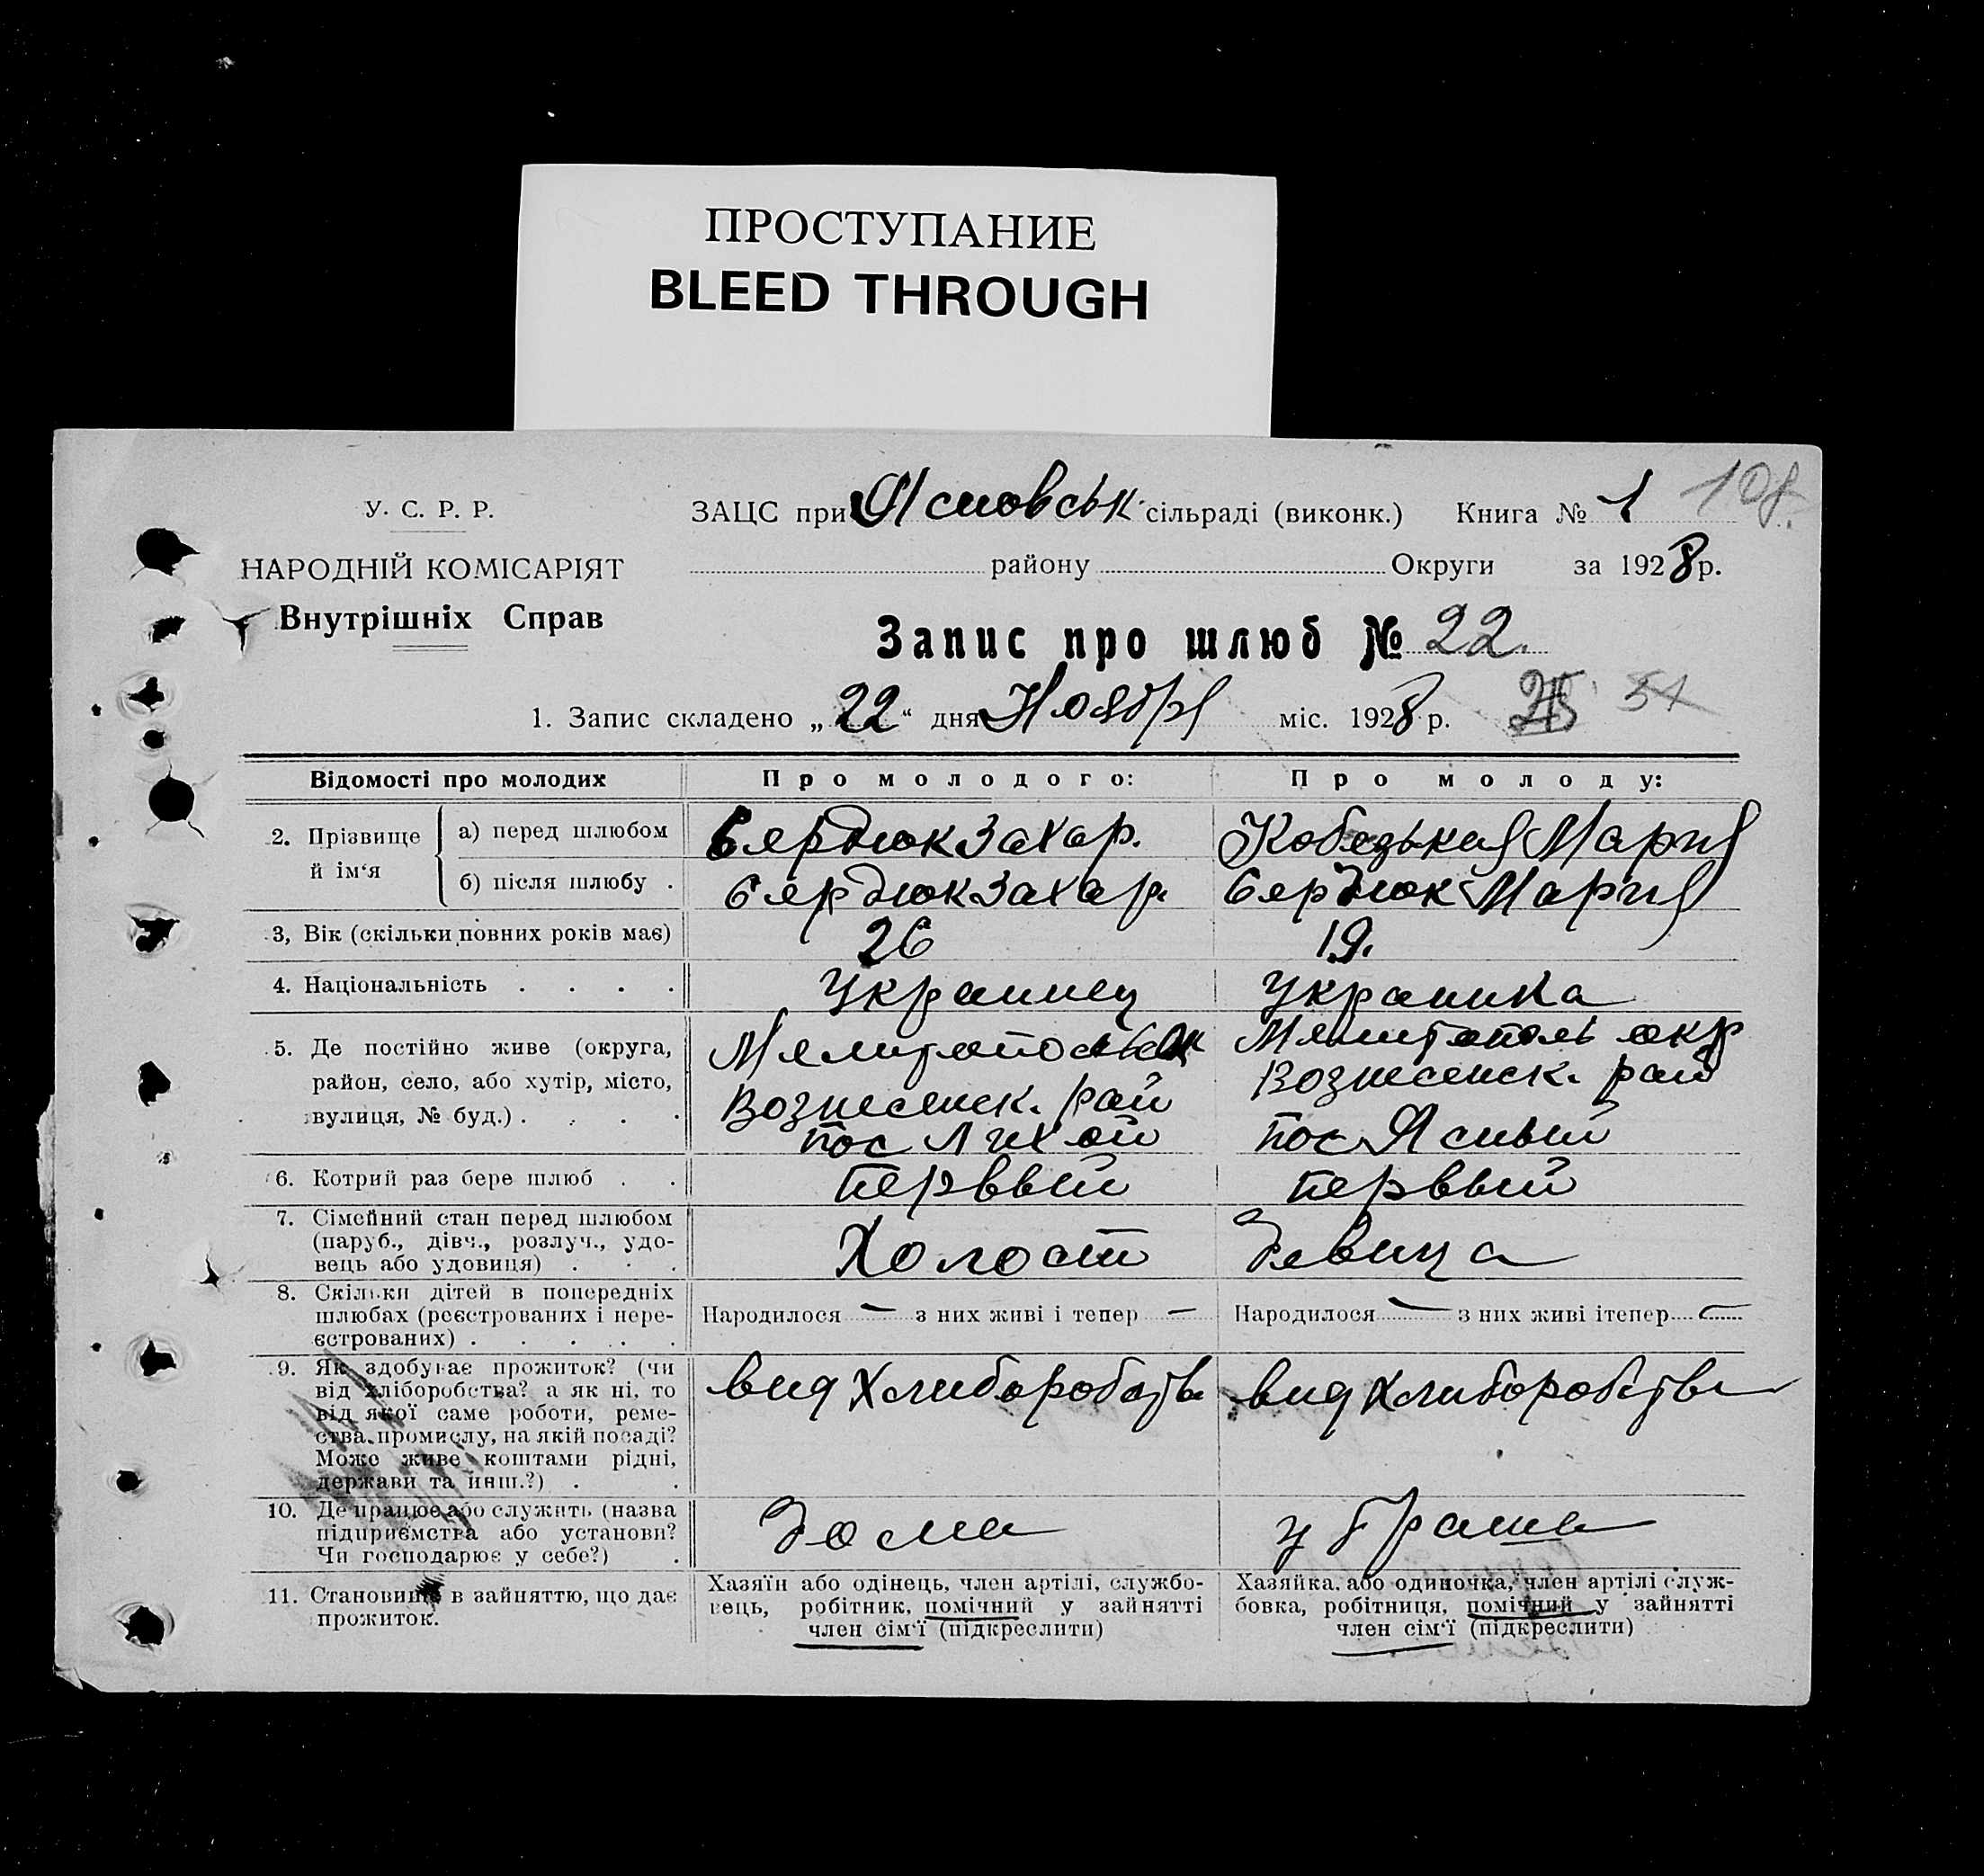 ПРОСТУПАНИЕ
BLEED THROUGH
108.
У. С. Р. Р.
НАРОДНІЙ КОМІСАРІЯТ
Внутрішніх Справ
ЗАЦС при Ясновськ сільраді (виконк.) Книга № 1
района Округи за 1928 р.
Запис про шлюб № 22.
1. Запис складено „22“ дня Ноября міс. 1928 р.
54
Відомості про молодих Про молодого: Про молоду:
2. Прізвище й ім‘я
а) перед шлюбом Сердюк Захар. Мария
б) після шлюбу . Сердюк Захар. Сердюк Мария
3, Вік (скільки повних років має) 26 19.
4. Національність . . . . Украинец Украинка
5. Де постійно живе (округа,
район, село, або хутір, місто,
вулиця, № буд.) . . . .
Мелитопольск
Вознесенск. рай
пос Лихой
Мелитополь окр
Вознесенск. рай
пос Ясный
6. Котрий раз бере шлюб . . Перввый перввый
7. Сімейний стан перед шлюбом
(паруб., дівч., розлуч., удо-
вець або удовиця) . . .
Холост Девица
8. Скільки дітей в попередніх
шлюбах (реєстрованих і нере-
єстрованих) . . . . .
Народилося — з них живі і тепер — Народилося — з них живі ітепер —
9. Як здобуває прожиток? (чи
від хліборобства? а як ні, то
від якої саме роботи, реме-
ства, промислу, на якій посаді?
Може живе коштами рідні,
держави та инш.?) . .
вид Хлиборобства вид Хлиборобства
10. Де працює або служить (назва
підприємства або установи?
Чи господарює у себе?) .
Дома у брата
11. Становище в зайняттю, що дає
прожиток.
Хазяїн або одінець, член артілі, службо-
вець, робітник, помічний у зайнятті
член сім‘ї (підкреслити)
Хазяйка, або одиночка, член артілі служ-
бовка, робітниця, помічний у зайнятті
член сім‘ї (підкреслити)